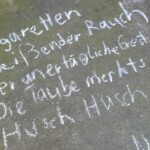 garetten
eißender Rauch
er unerträgliche Gest
Die Taube merkts
Husch Husch